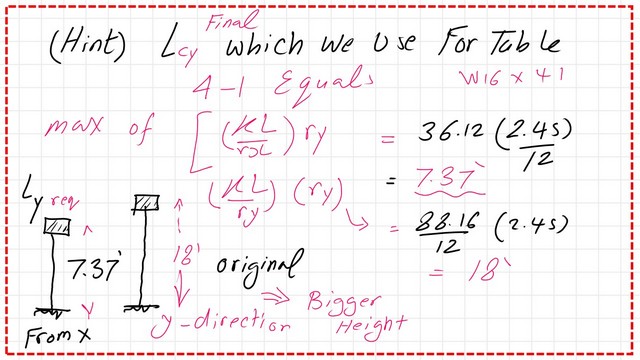 Final
(Hint) Lcy which we use For Table
4-1 Equals W16 x 41
max of [(KL/rx) ry = 36.12 (2.45)/12
= 7.37'
(KL/ry) (ry) = 88.16/12 (2.45)
= 18'
Ly req
7.37'
18'
original
From x
y-direction ⇒ Bigger
Height